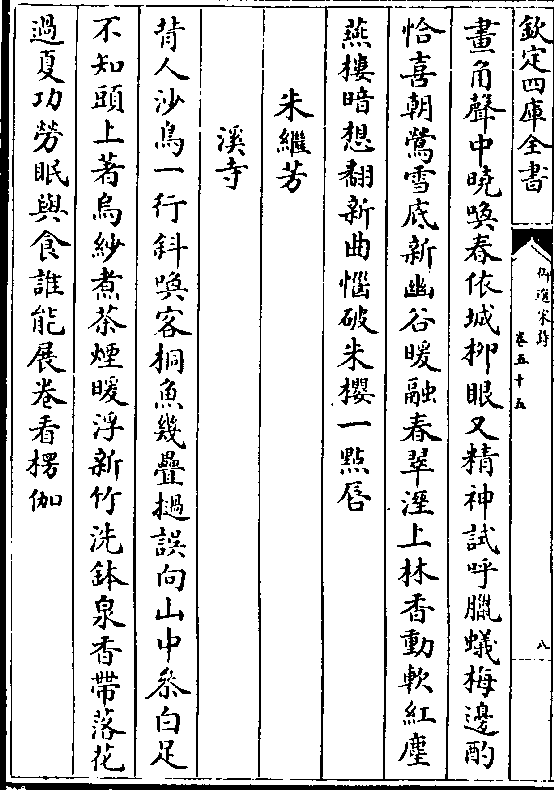 欽定四庫全書
御選宋詩
卷五十五
八
畫角聲中曉喚春依城柳眼又精神試呼臘蟻梅邊酌
恰喜朝鶯雪底新幽谷暖融春翠溼上林香動軟紅塵
燕樓暗想翻新曲惱破朱櫻一點唇
朱繼芳
溪寺
背人沙鳥一行斜喚客桐魚幾疊撾誤向山中叅白足
不知頭上著烏紗煮茶煙暖浮新竹洗鉢泉香帶落花
過夏功勞眠與食誰能展卷看楞伽